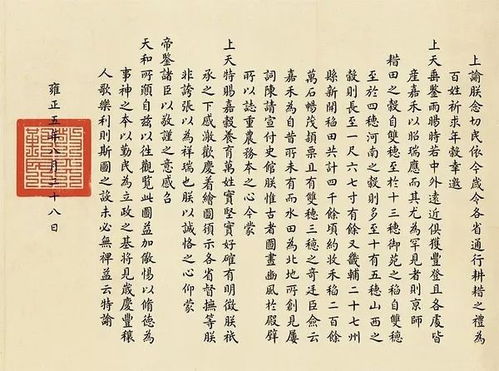 上諭朕念切民依今歲令各省通行耕耤之禮為
百姓祈求年穀幸邀
上天垂鑒雨暘時若中外遠近俱獲豐登且各處皆
產嘉禾以昭瑞應而其尤為罕見者則京師
耤田之穀自雙穗至於十三穗御苑之稻自雙穗
至於四穗河南之穀則多至十有五穗山西之
穀則長至一尺六七寸有餘又畿輔二十七州
縣新開稻田共計四千餘頃約收禾稻二百餘
萬石暢茂穎栗且有雙穗三穗之奇廷臣僉云
嘉禾為自昔所未有而水田為北地所創見屢
詞陳請宣付史館朕惟古者圖畫豳風於殿壁
所以誌重農務本之心今蒙
上天特賜嘉穀養育萬姓實堅實好確有明徵朕祇
承之下感激歡慶著繪圖頒示各省督撫等朕
非誇張以為祥瑞也朕以誠恪之心仰蒙
帝鑒諸臣以敬謹之意感召
天和所願自茲以往觀覽此圖益加儆惕以修德為
事神之本以勤民為立政之基將見歲慶豐穰
人歌樂利則斯圖之設未必無裨益云特諭
雍正五年八月二十八日